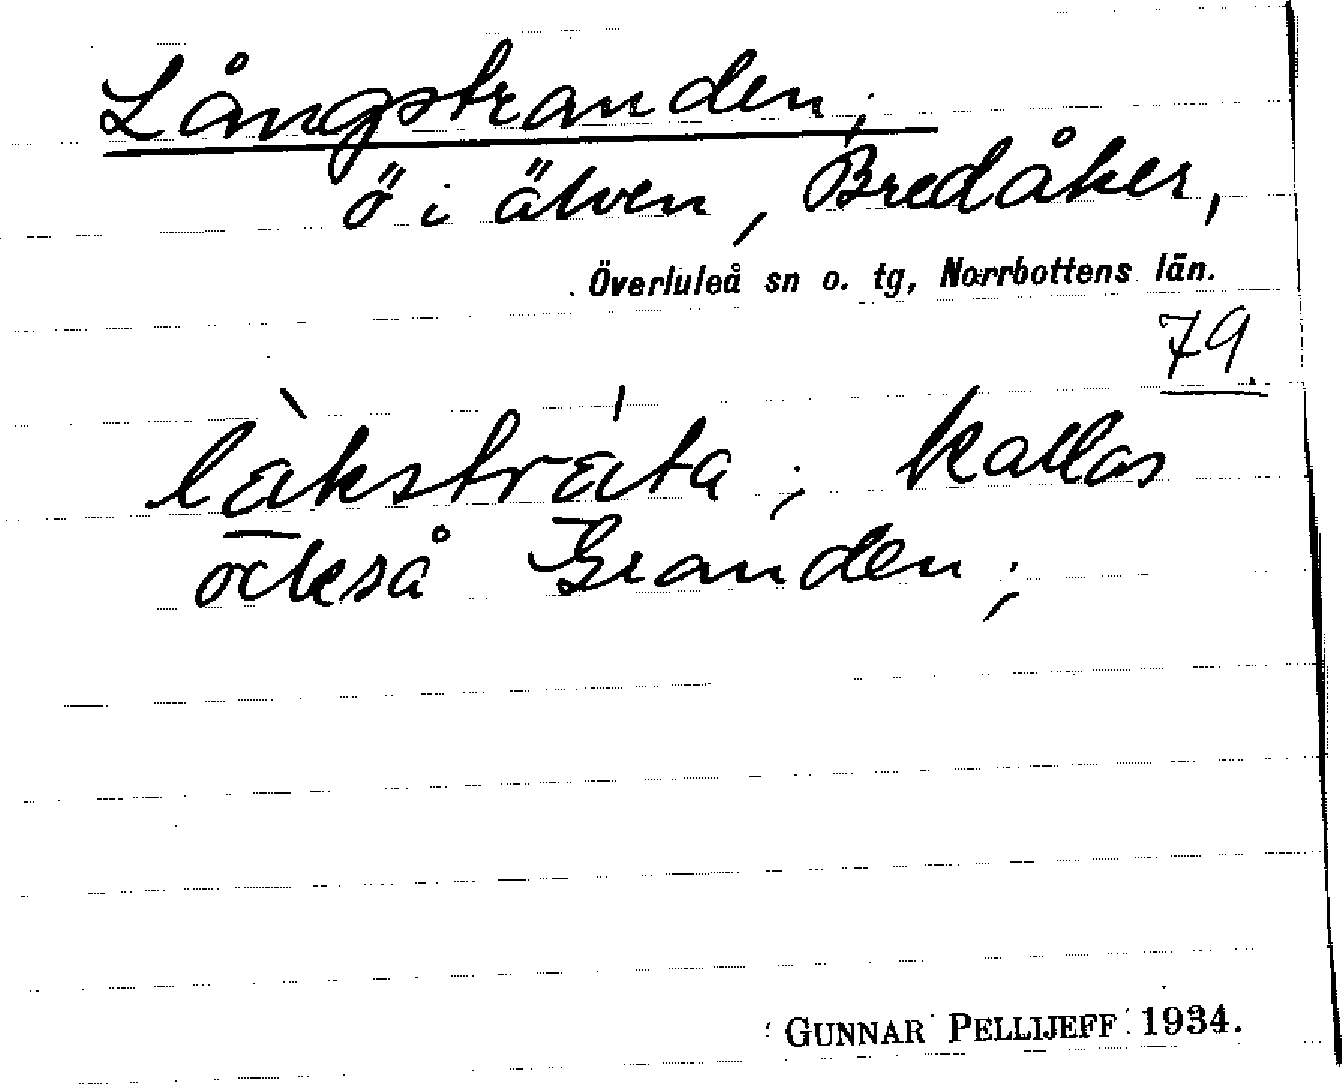 Långstranden;
ö i älven, Bredåker,
Överluleå sn o. tg, Norrbottens län.
79.
làkstráta; kallas
också Granden;
GUNNAR PELLIJEFF 1934.